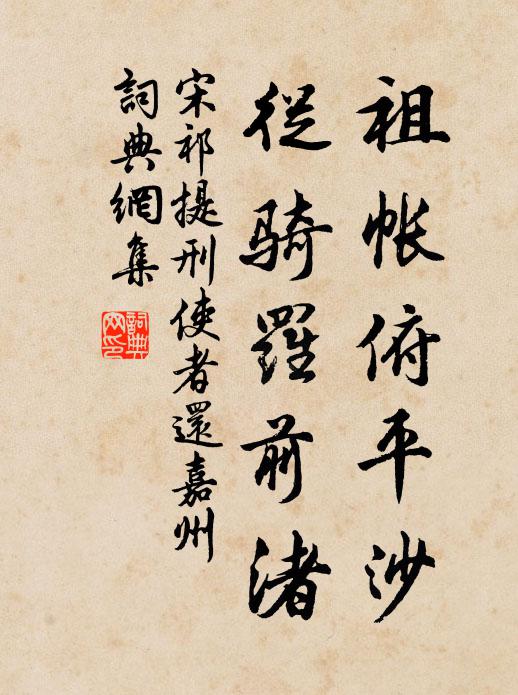 祖帐俯平沙
從骑羅前渚
宋祁提刑使者還嘉州
詞典網集
詞典网印